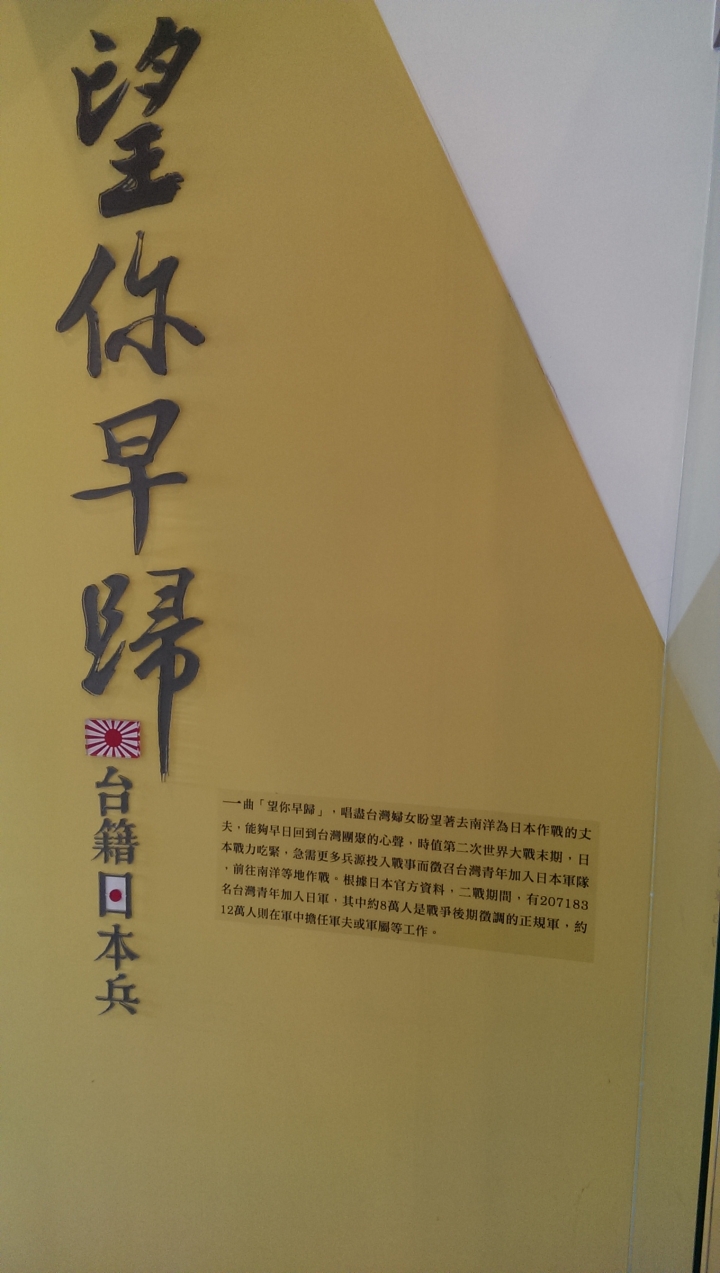 望你早歸
台籍日本兵
一曲「望你早歸」，唱盡台灣婦女盼望著去南洋為日本作戰的丈
夫，能夠早日回到台灣團聚的心聲。時值第二次世界大戰末期，日
本戰力吃緊，急需更多兵源投入戰事而徵召台灣青年加入日本軍隊
，前往南洋等地作戰。根據日本官方資料，二戰期間，有207183
名台灣青年加入日軍，其中約8萬人是戰爭後期徵調的正規軍，約
12萬人則在軍中擔任軍夫或軍屬等工作。